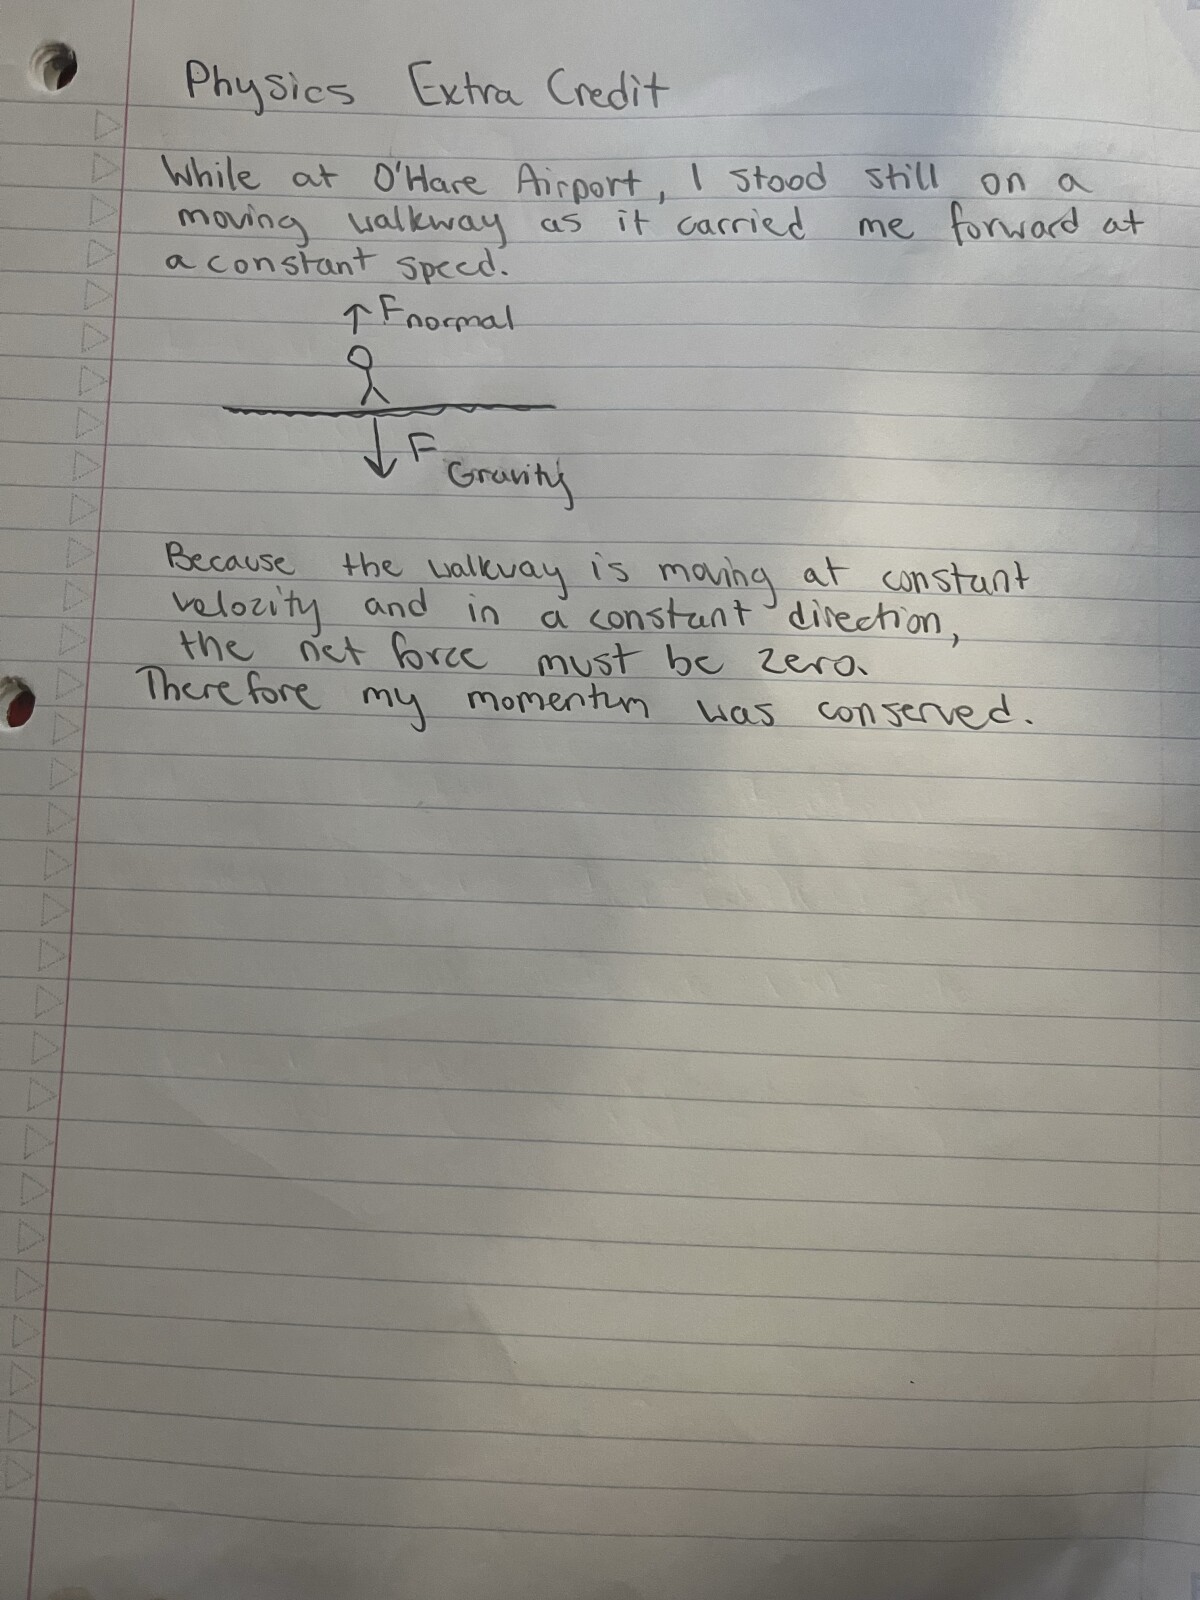 Physics Extra Credit
While at O'Hare Airport, I stood still on a
moving walkway as it carried me forward at
a constant speed.
↑ Fnormal
↓ F Gravity
Because the walkway is moving at constant
velocity and in a constant direction,
the net force must be zero.
Therefore my momentum was conserved.